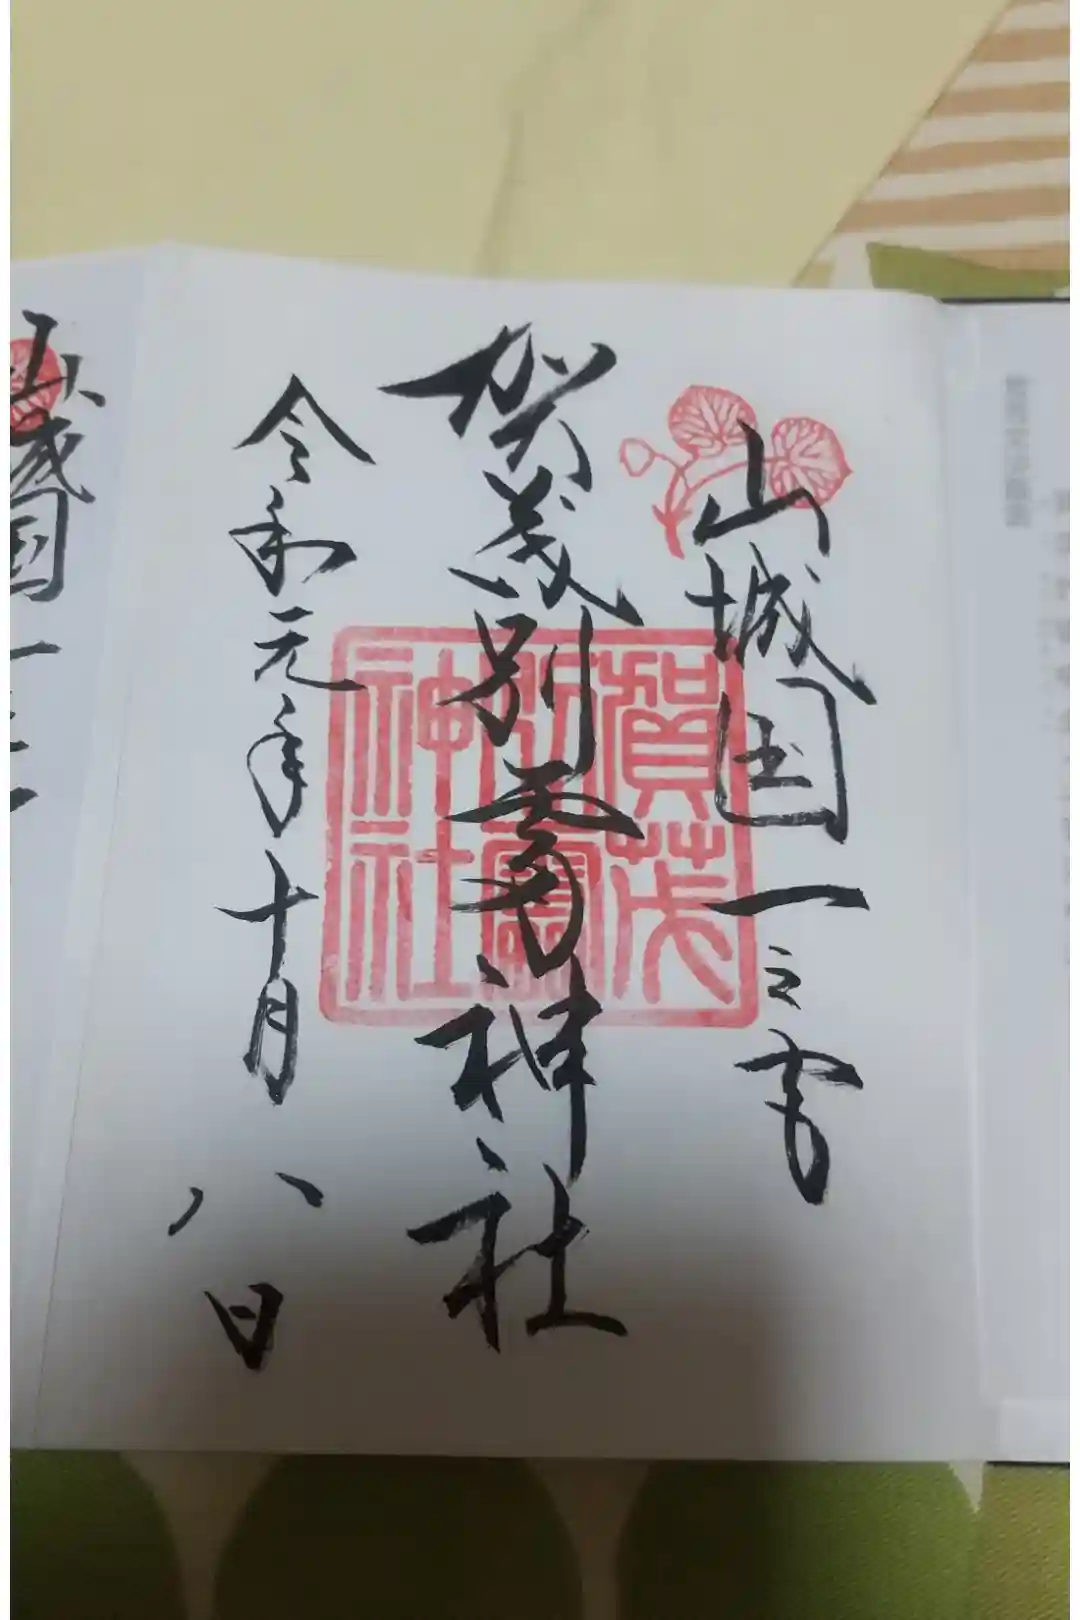 山城国一之宮
賀茂別雷神社
令和元年十月八日
賀茂
別雷
神社
山城国一